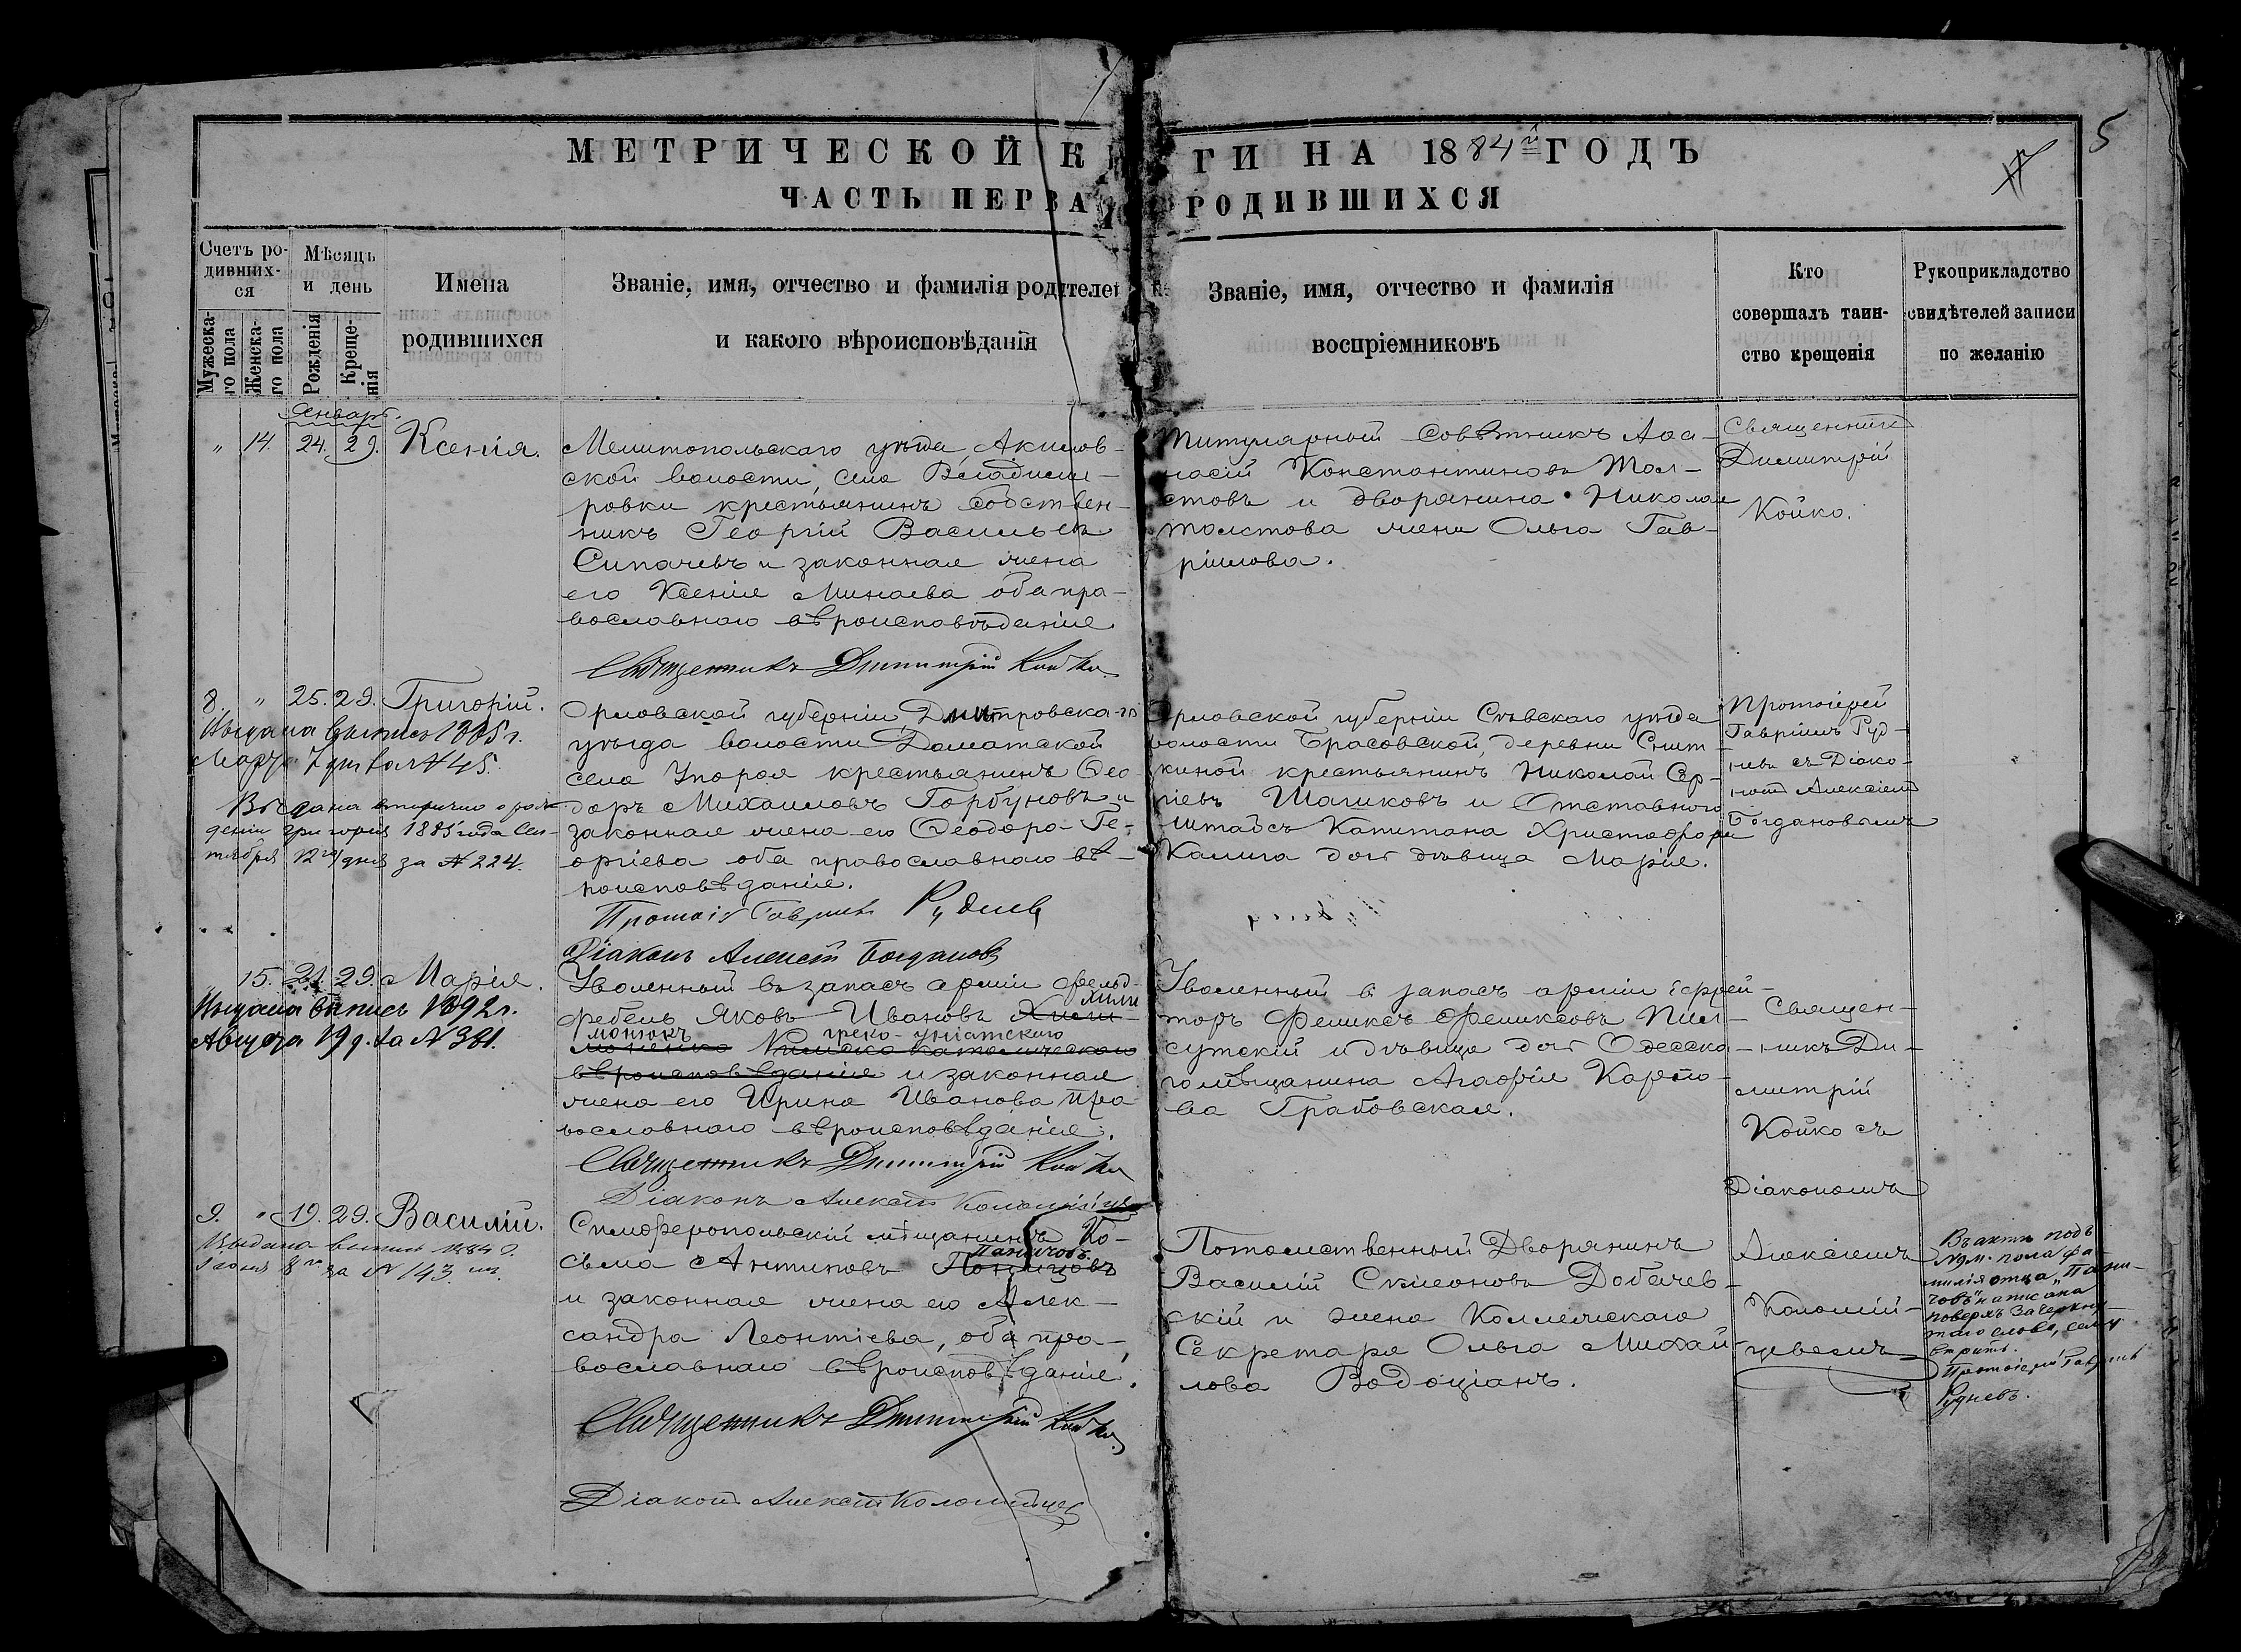 МЕТРИЧЕСКОЙ К ГИ НА 1884й ГОДЪ
5
ЧАСТЬ ПЕРВА РОДИВШИХСЯ
Счетъ ро-
дивших-
ся
Мужеска-
го пола
Женска-
го пола
Мѣсяцъ
и день
Рожденія
Креще-
нія
Имена
родившихся
Званіе, имя, отчество и фамилія родителей
и какого вѣроисповѣданія
Званіе, имя, отчество и фамилія
воспріемниковъ
Кто
совершалъ таин-
ство крещенія
Рукоприкладство
свидѣтелей записи
по желанію
Январь.
" 14. 24. 29. Ксенія.
Мелитопольскаго уѣзда, Акимов-
ской волости, села Владими-
ровки крестьянинъ собствен-
никъ Георгій Васильевъ
Сипачевъ и законная жена
его Ксенія Минаева оба пра-
вославнаго вѣроисповѣданія.
Священникъ Димитрій Койко.
Титулярный Совѣтникъ Аѳа-
насій Константиновъ Тол-
стовъ и дворянина Николая
Толстова жена Ольга Гав-
ріилова.
Священникъ
Димитрій
Койко.
8. " 25. 29. Григорій.
Выдана выпись 1905 г.
Марта 7 дня за № 45.
Выдана вторично о рож-
деніи Григорія 1885 года Сен-
тября 12го дня за № 224.
Орловской губерніи Дмитровска-го
уѣзда волости Доматской
села Упороя крестьянинъ Ѳео-
доръ Михаиловъ Горбуновъ и
законная жена его Ѳеодора Ге-
оргіева оба православнаго вѣ-
роисповѣданія.
Протоіе Гавріилъ Рудневъ
Діаконъ Алексѣй Богдановъ
Орловской губерніи Сѣвскаго уѣзда
волости Брасовской, деревни Снит-
киной крестьянинъ Николай Сер-
гіевъ Шашковъ и Отставного
Штабсъ Капитана Христофора
Калига дочь дѣвица Марія.
Протоіерей
Гавріилъ Руд-
невъ съ Діако-
номъ Алексіемъ
Богдановымъ
15. 21. 29. Марія.
Выдана выпись 1892 г.
Августа 19 д. за № 381.
Уволенный въ запасъ арміи фельд-
фебель Яковъ Ивановъ Хили-
хили
монюкъ греко-уніатскаго
моненко Римско Католическаго
вѣроисповѣданія и законная
жена его Ирина Иванова пра-
вославнаго вѣроисповѣданія.
Священникъ Димитрій Койко
Діаконъ Алексѣй Коломійцевъ
Уволенный въ запасъ арміи Ефрей-
торъ Феликсъ Феликсовъ Пил-
сутскій и дѣвица дочь Одесска-
го мѣщанина Агафія Карпо-
ва Грабовская.
Священ-
никъ Ди-
митрій
Койко съ
Діакономъ
Алексіемъ
Коломій-
цевымъ
9. " 19. 29. Василій.
Выдана выпись 1884 г.
Іюня 8го за № 143.
Симферопольскій мѣщанинъ Ко-
Паничовъ
сьма Антиповъ
и законная жена его Алек-
сандра Леонтіева, оба пра-
вославнаго вѣроисповѣданія.
Священникъ Димитрій Койко
Діаконъ Алексѣй Коломійцевъ
Потомственный Дворянинъ
Василій Симеоновъ Добачев-
скій и жена Коллежскаго
Секретаря Ольга Михай-
лова Водоціанъ.
Въ актѣ подъ
№ 9 м. пола фа-
милія отца „Пани-
човъ" написана
поверхъ зачеркну-
таго слова, сему
вѣрить.
Протоіерей Гавріилъ
Рудневъ.